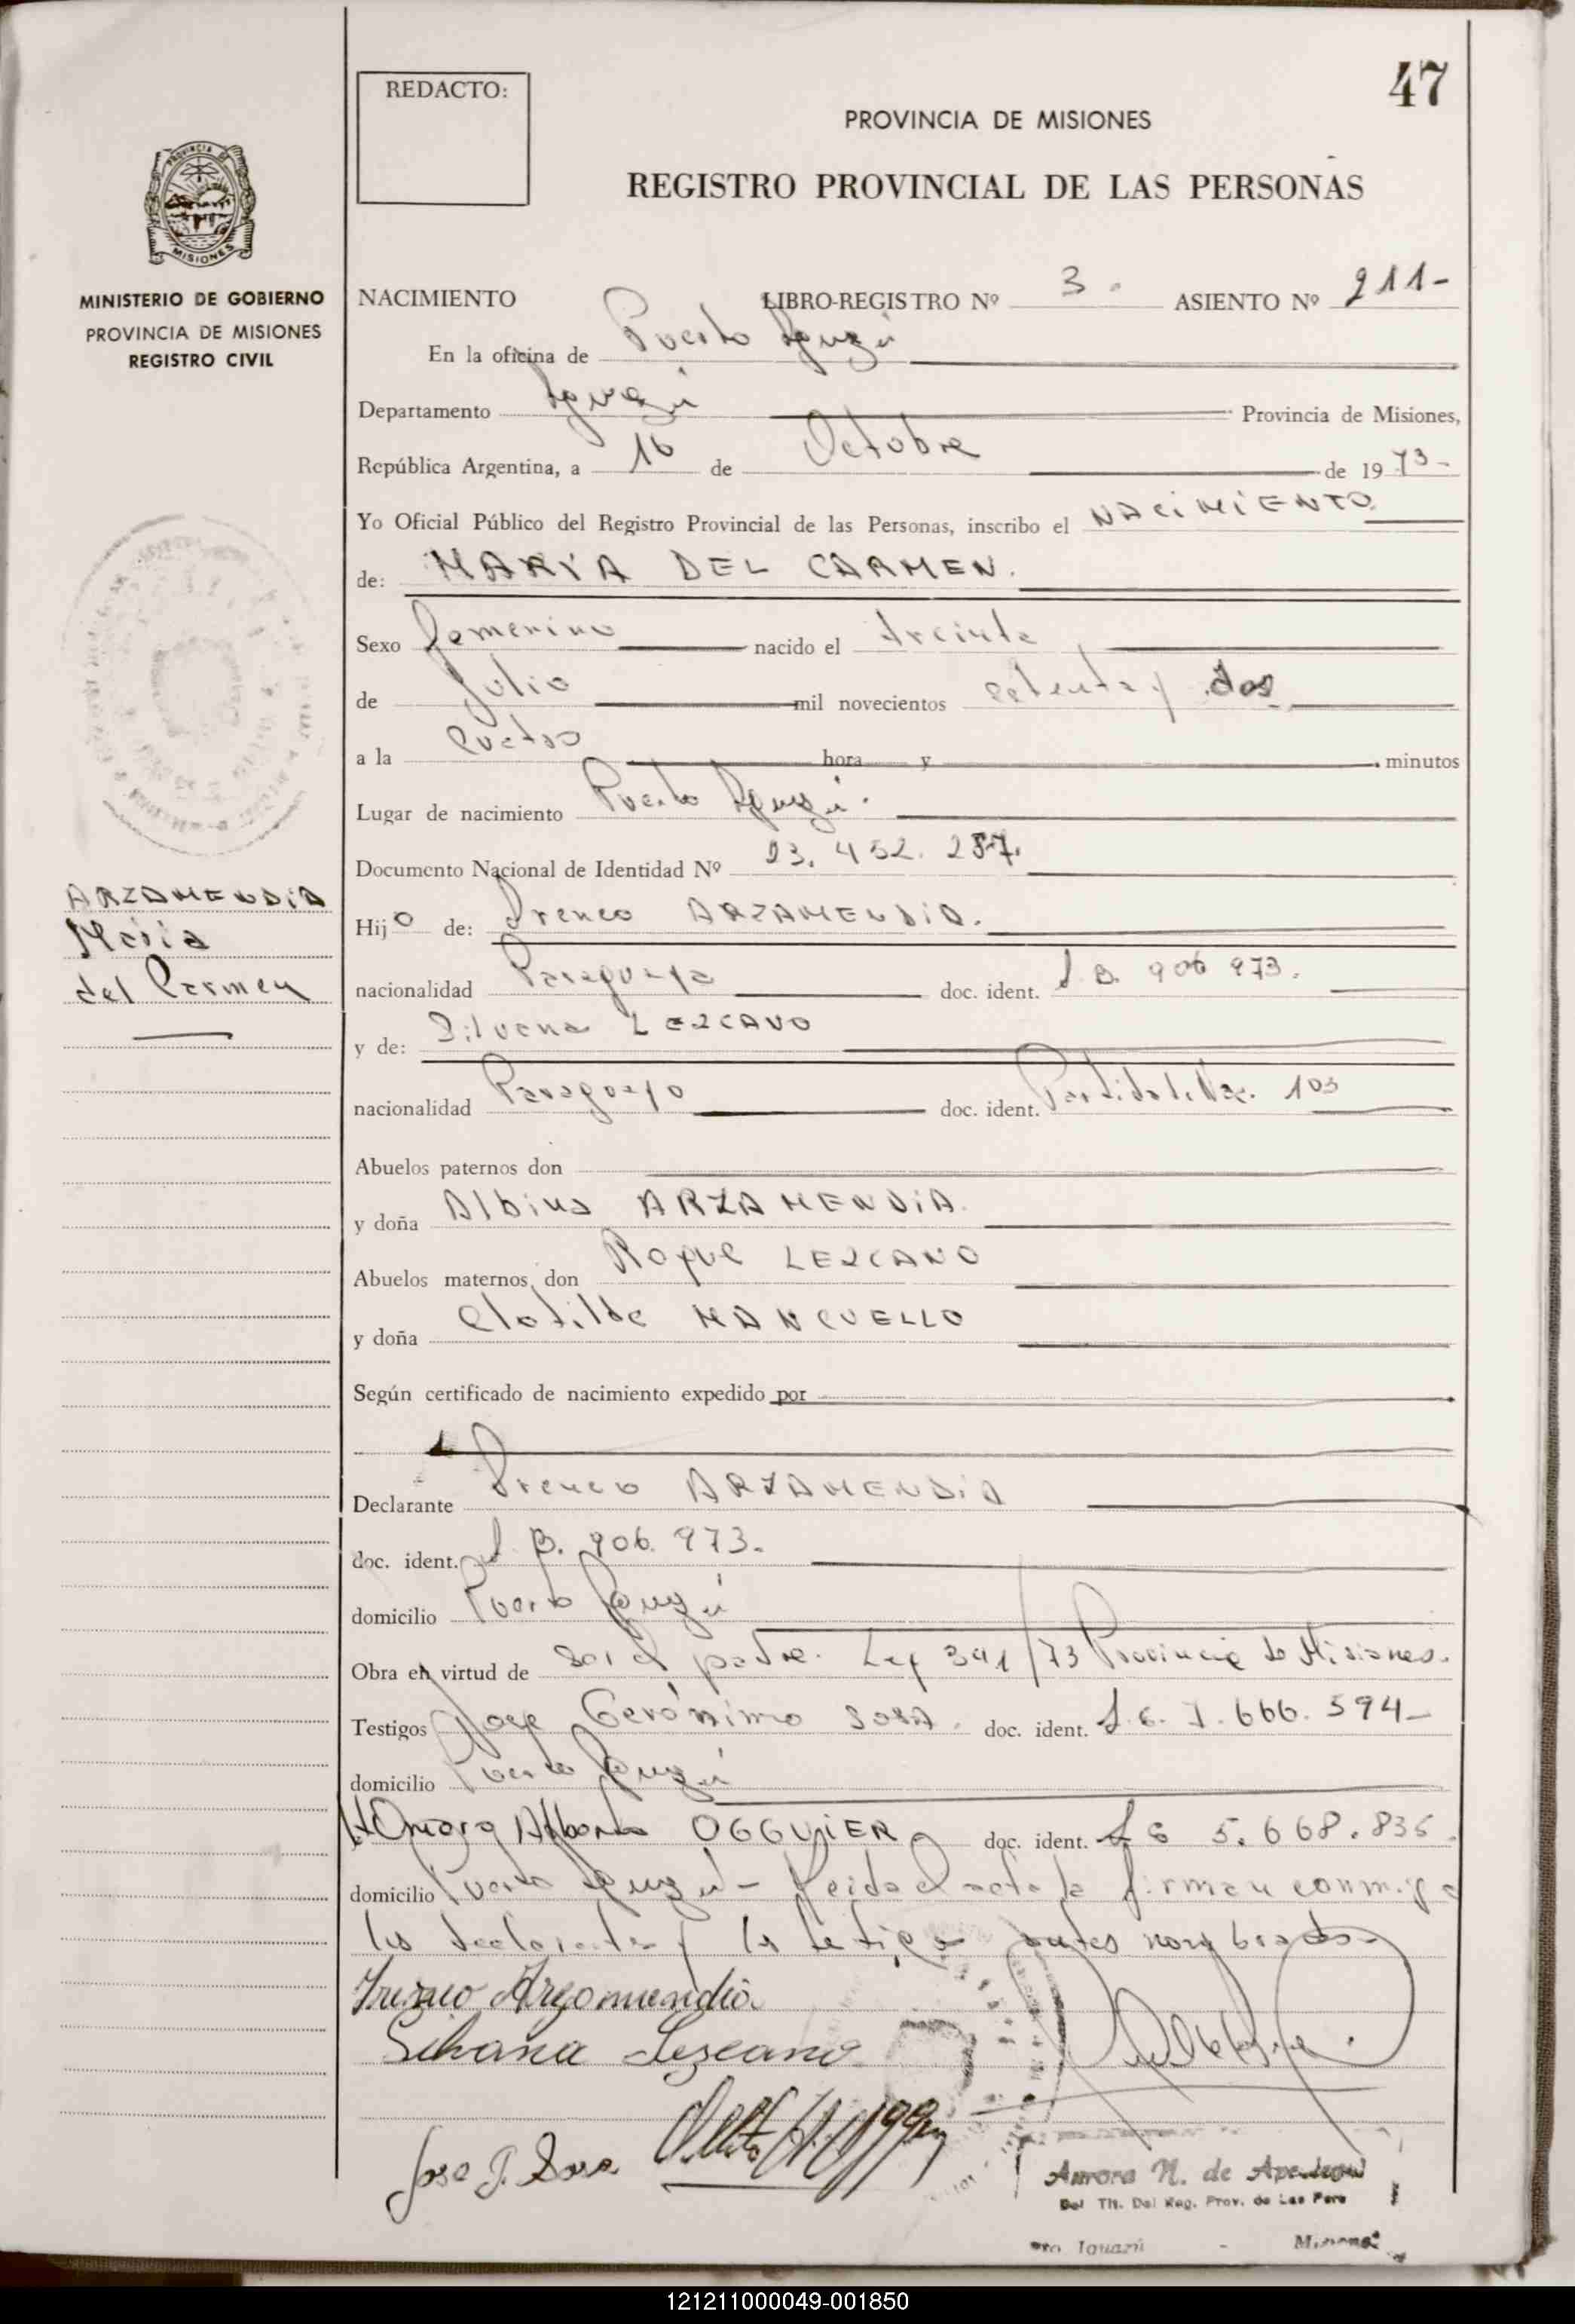 47
REDACTO:
PROVINCIA DE MISIONES
REGISTRO PROVINCIAL DE LAS PERSONAS
PROVINCIA DE
MISIONES
MINISTERIO DE GOBIERNO
PROVINCIA DE MISIONES
REGISTRO CIVIL
NACIMIENTO LIBRO-REGISTRO Nº 3. ASIENTO Nº 211-
En la oficina de Puerto Iguazú
Departamento Iguazú Provincia de Misiones,
República Argentina, a 16 de Octubre de 1973-
Yo Oficial Público del Registro Provincial de las Personas, inscribo el NACIMIENTO
de: MARÍA DEL CARMEN.
Sexo femenino nacido el treinta
de Julio mil novecientos setenta y dos
a la cuatro hora y minutos
Lugar de nacimiento Puerto Iguazú.
Documento Nacional de Identidad Nº 23.452.287.
ARZAMENDIA
María
del Carmen
Hijo de: Ireneo ARZAMENDIA.
nacionalidad Paraguaya doc. ident. I.B. 906 973.
y de: Silvana LEZCANO
nacionalidad Paraguayo doc. ident. Partida de Nac. 103
Abuelos paternos don
y doña Albina ARZAMENDIA.
Abuelos maternos don Roque LEZCANO
y doña Clotilde MANCUELLO
Según certificado de nacimiento expedido por
Declarante Ireneo ARZAMENDIA
doc. ident. I.B. 906.973.
domicilio Puerto Iguazú
Obra en virtud de ser el padre. Ley 391/73 Provincia de Misiones.
Testigos José Gerónimo SOSA. doc. ident. L.E. 7.666.594-
domicilio Puerto Iguazú
Alberto OGGUIER doc. ident. L E 5.668.836.
domicilio Puerto Iguazú - Leida el acta la firman conmigo
los declarantes y los testigos antes nombrados-
Ireneo Arzamendia
Silvana Lezcano
Jose G. Sosa
Aurora N. de
Del Tit. Del Reg. Prov. de Las Pers
Pto Iguazú - Misiones
121211000049-001850